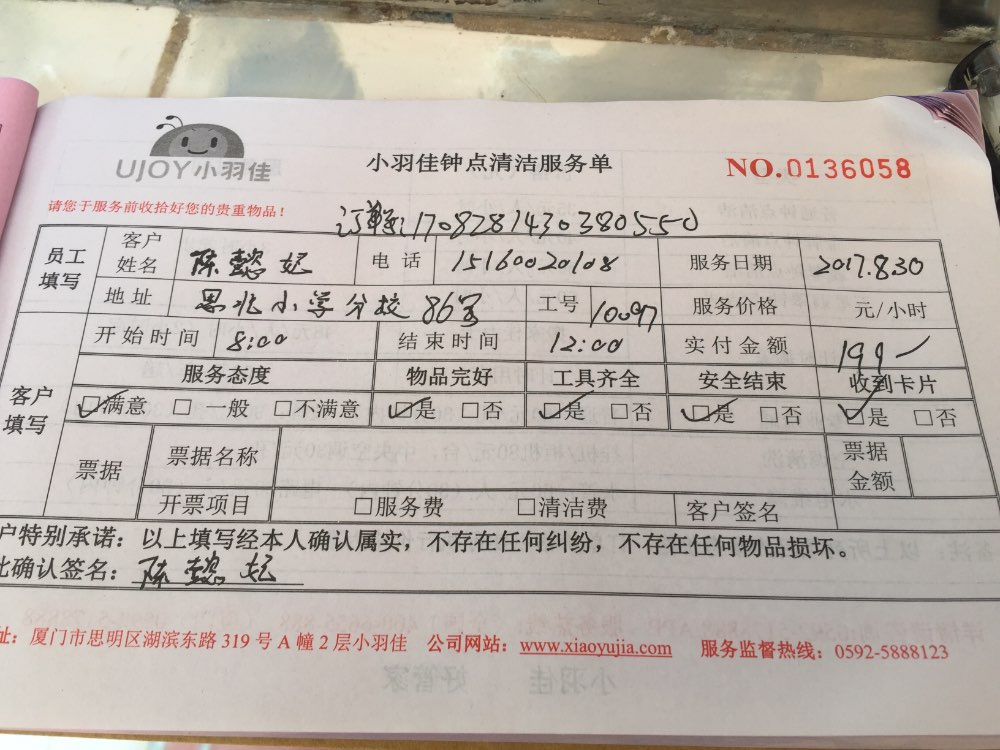 UJOY小羽佳
小羽佳钟点清洁服务单
NO.0136058
请您于服务前收拾好您的贵重物品!
订单号:170828143038055​0
员工填写 客户姓名 陈懿妃 电话 15160020108 服务日期 2017.8.30
地址 思北小学分校86号 工号 10097 服务价格 元/小时
客户填写 开始时间 8:00 结束时间 12:00 实付金额 199
服务态度 物品完好 工具齐全 安全结束 收到卡片
☑满意 □一般 □不满意 ☑是 □否 ☑是 □否 ☑是 □否 ☑是 □否
票据 票据名称 票据金额
开票项目 □服务费 □清洁费 客户签名
户特别承诺：以上填写经本人确认属实，不存在任何纠纷，不存在任何物品损坏。
此确认签名：陈懿妃
址：厦门市思明区湖滨东路319号A幢2层小羽佳 公司网站：www.xiaoyujia.com 服务监督热线：0592-5888123